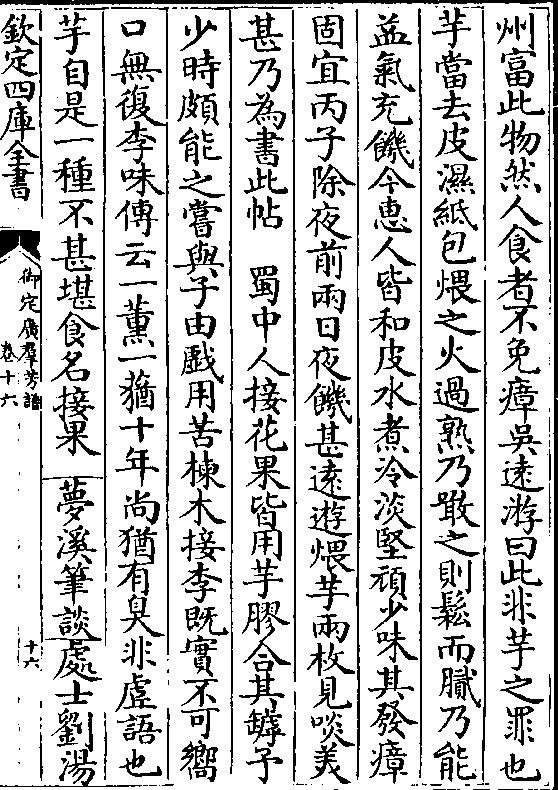 州富此物然人食者不免瘴吳遠游曰此非芋之罪也
芋當去皮濕紙包煨之火過熟乃噉之則鬆而膩乃能
益氣充饑今惠人皆和皮水煮冷淡堅頑少味其發瘴
固宜丙子除夜前兩日夜饑甚遠遊煨芋兩枚見啖美
甚乃為書此帖　蜀中人接花果皆用芋膠合其罅予
少時頗能之嘗與子由戲用苦楝木接李既實不可嚮
口無復李味傳云一薰一蕕十年尚猶有臭非虛語也
芋自是一種不甚堪食名接果　夢溪筆談處士劉湯
欽定四庫全書
御定廣群芳譜
卷十六
十六